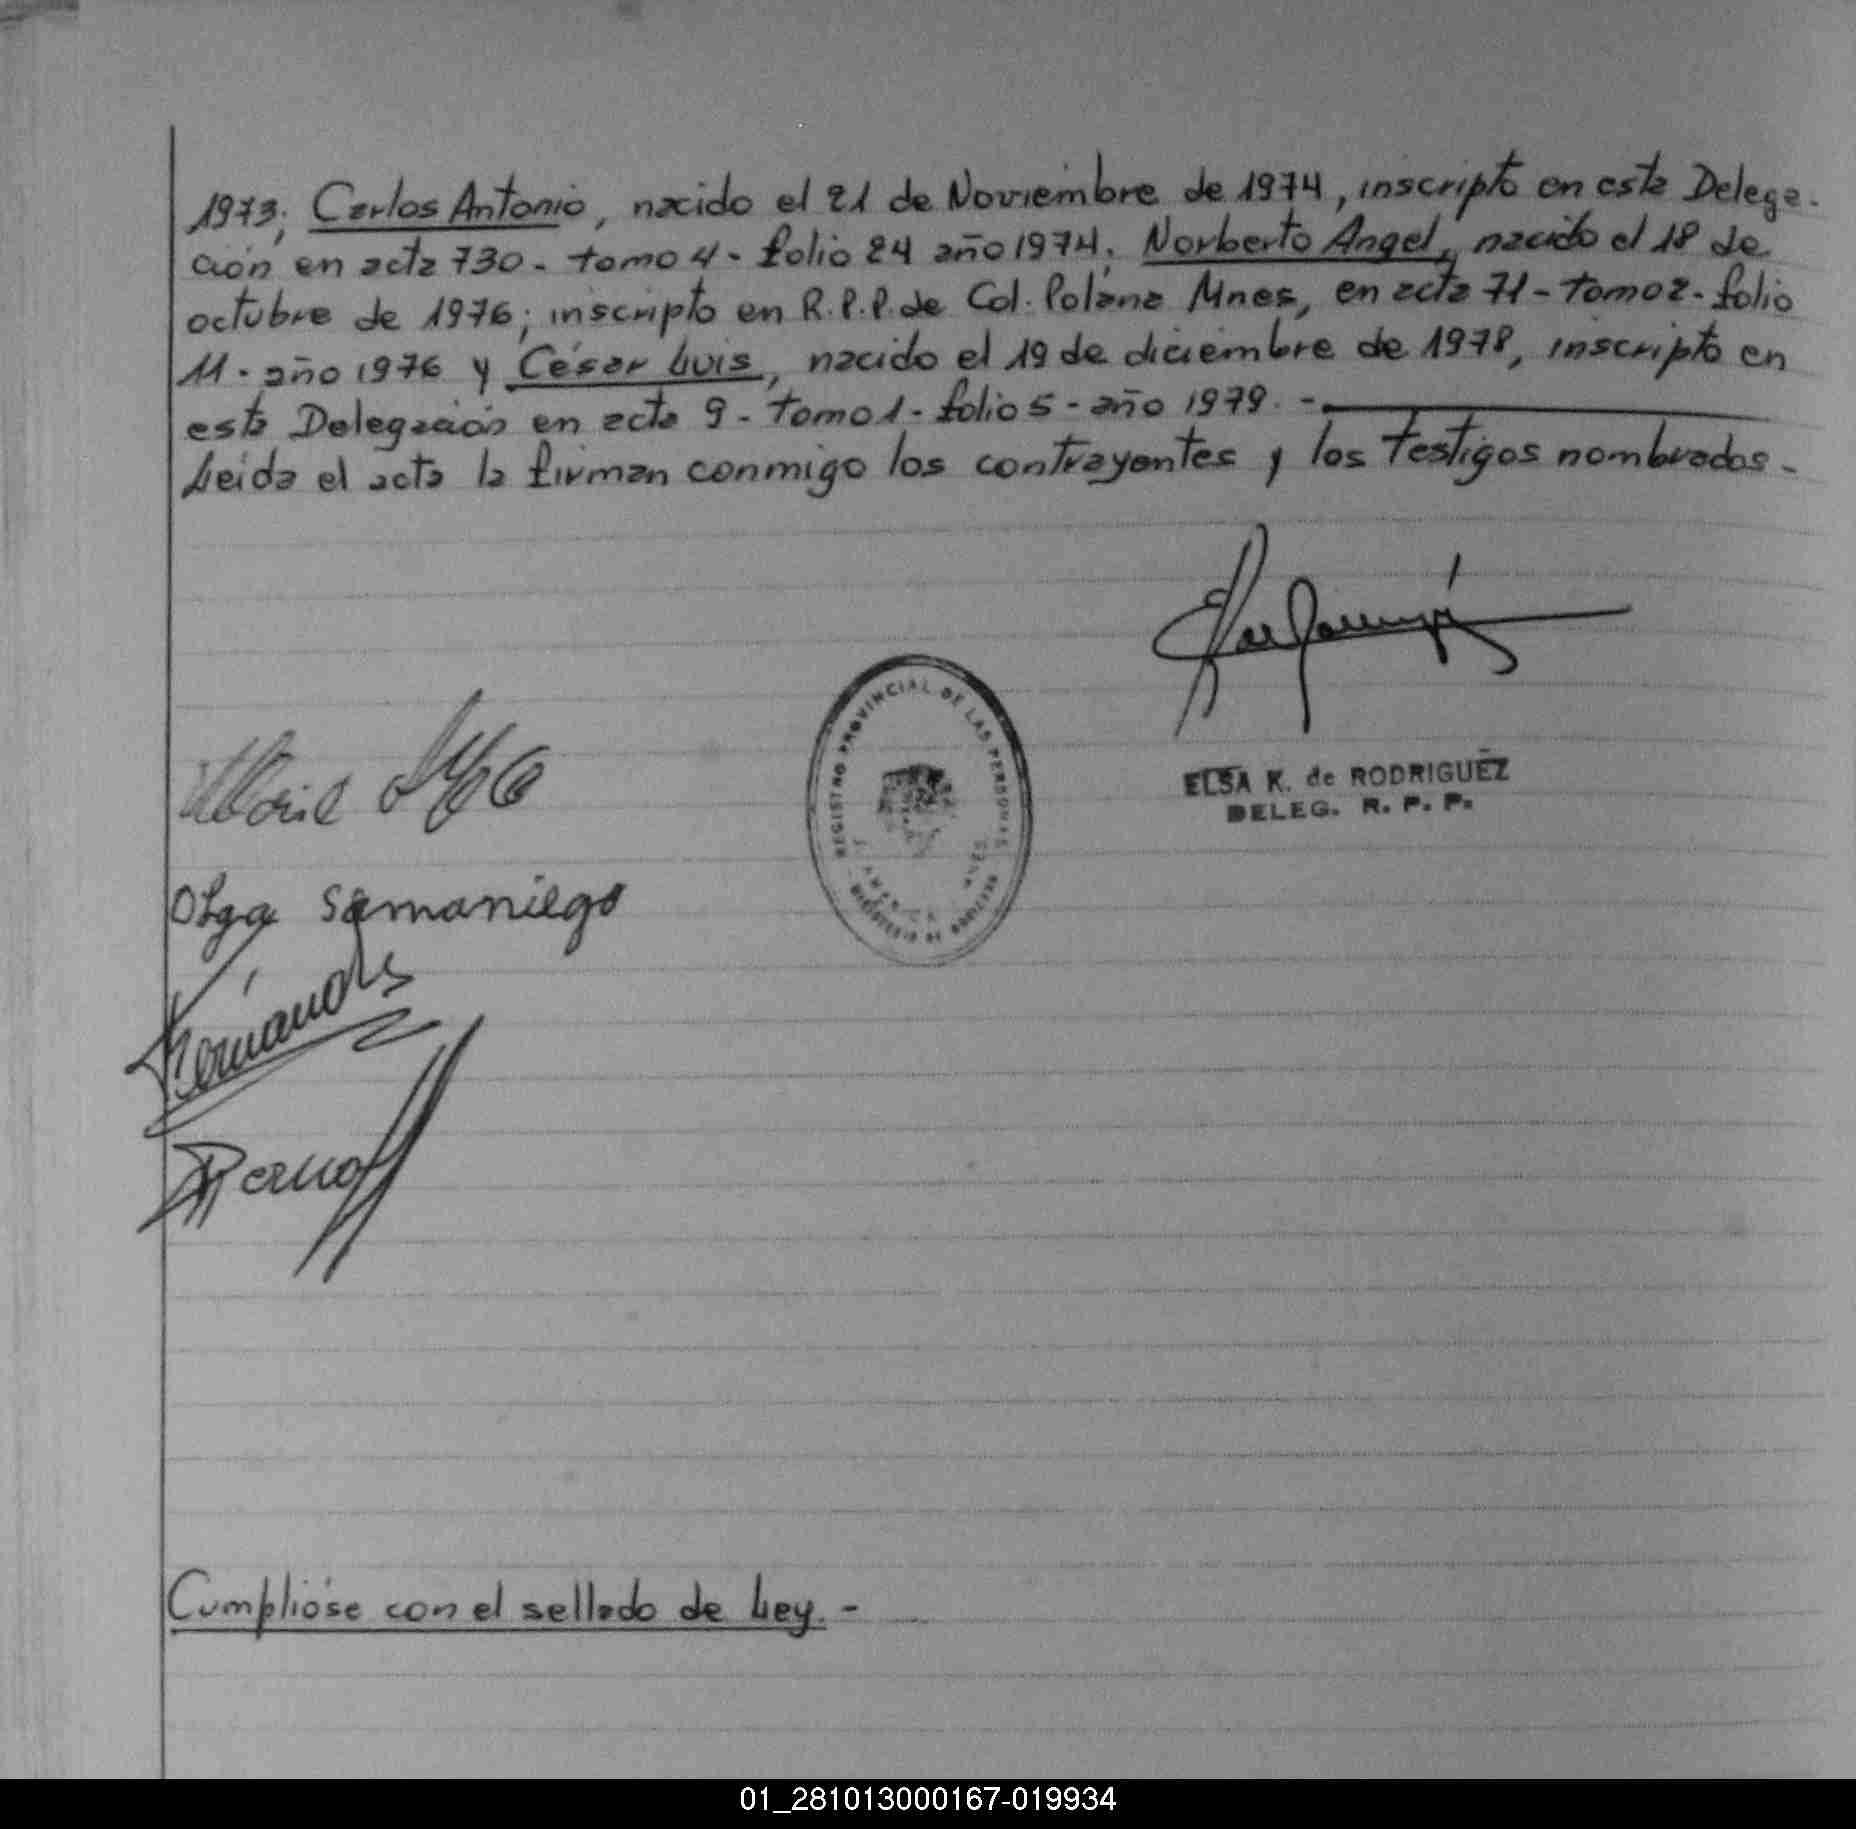 1973; Carlos Antonio, nacido el 21 de Noviembre de 1974, inscripto en esta Delega-
ción, en acta 730 - tomo 4 - folio 24 año 1974; Norberto Angel, nacido el 18 de
octubre de 1976; inscripto en R.P.P. de Col. Polana Mnes, en acta 71 - tomo 2 - folio
11 - año 1976 y César Luis, nacido el 19 de diciembre de 1978, inscripto en
esta Delegación en acta 9 - tomo 1 - folio 5 - año 1979. -
Leida el acta la firman conmigo los contrayentes y los testigos nombrados -
REGISTRO PROVINCIAL DE LAS PERSONAS
MINISTERIO DE GOBIERNO
ELSA K. de RODRIGUEZ
DELEG. R. P. P.
Olga Samaniego
Cumplióse con el sellado de Ley. -
01_281013000167-019934